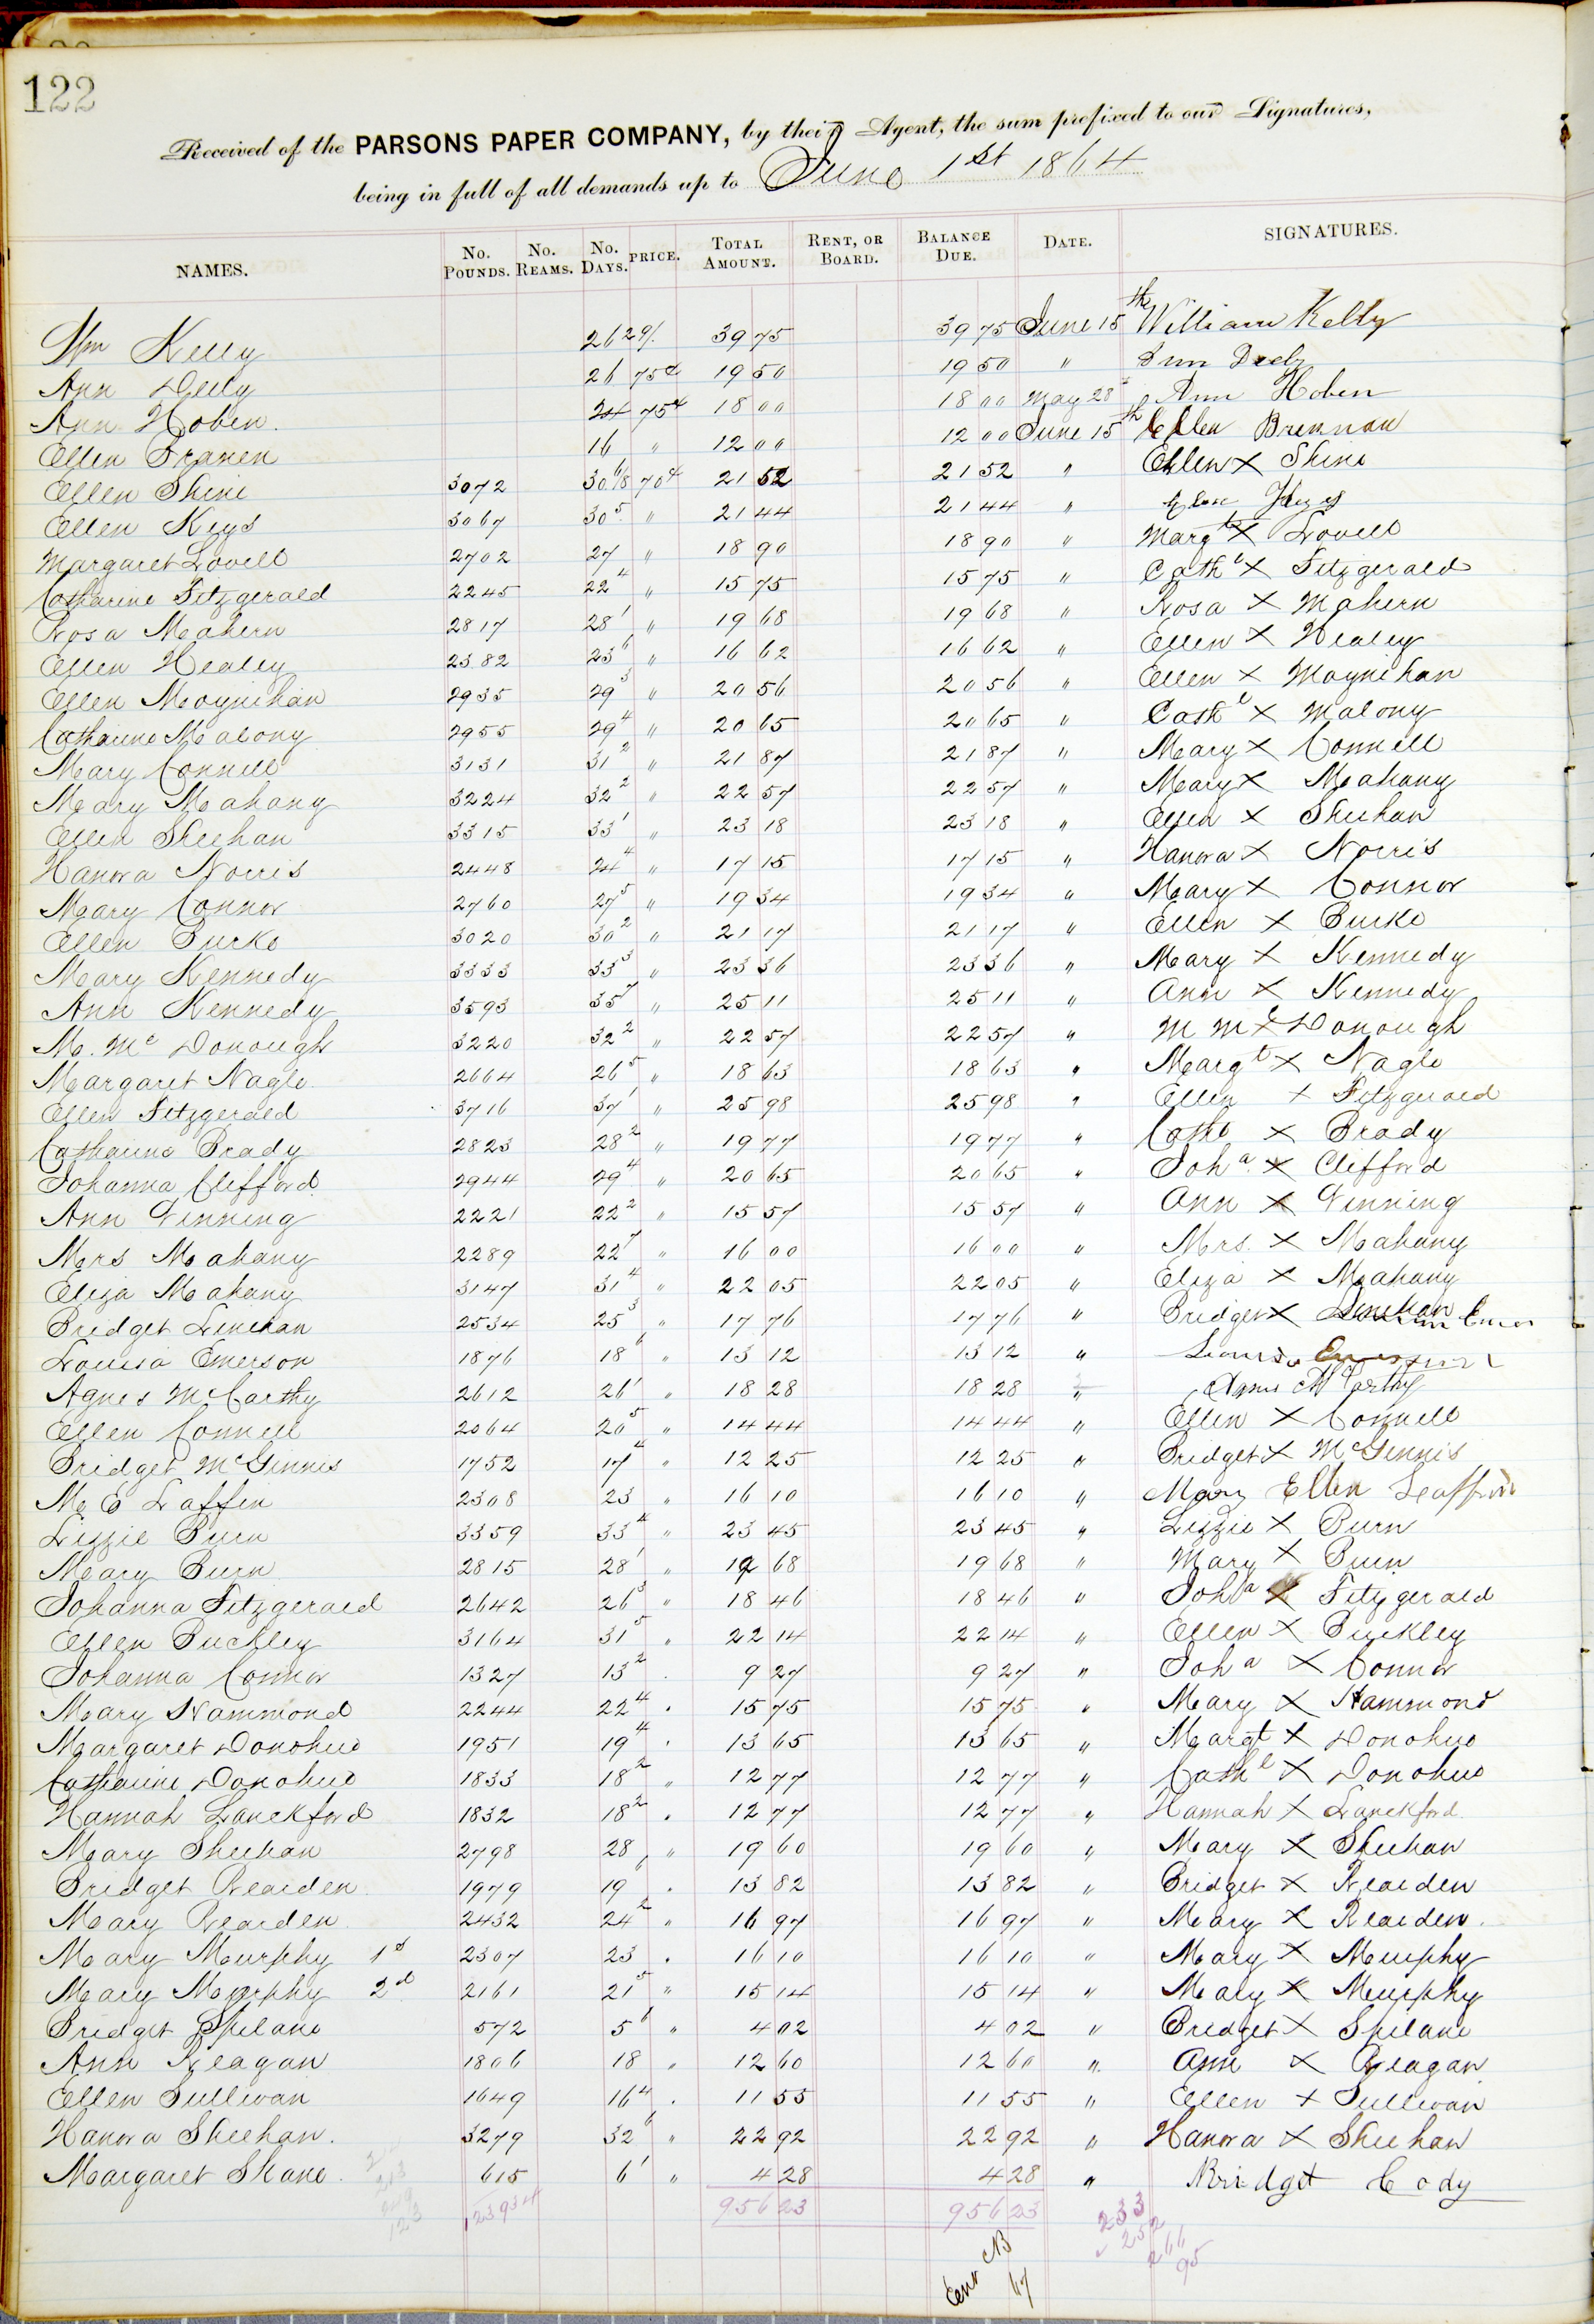 122
Received of the PARSONS PAPER COMPANY, by their Agent, the sum prefixed to our Signatures,
being in full of all demands up to June 1st 1864
NAMES. No. Pounds. No. Reams. No. Days. PRICE. Total Amount. Rent, or Board. Balance Due. Date. SIGNATURES.
Wm Kelly 26 39 75 39 75 June 15th William Kelly
Ann Deely 26 75¢ 19 50 19 50 " Ann Deely
Ann Hoben. 24 75¢ 18 00 18 00 May 28 Ann Hoben
Ellen Branen 16 " 12 00 12 00 June 15th Ellen Brennan
Ellen Shine 3072 30 6/8 70¢ 21 52 21 52 " Ellen X Shine
Ellen Keys 3067 30 5 " 21 44 21 44 " Ellen Keys
Margaret Lovell 2702 27 " 18 90 18 90 " Margt X Lovell
Catharine Fitzgerald 2245 22 4 " 15 75 15 75 " Cathe X Fitzgerald
Rosa Mahern 2817 28 1 " 19 68 19 68 " Rosa X Mahern
Ellen Healey 2382 23 6 " 16 62 16 62 " Ellen X Healey
Ellen Moynihan 2935 29 3 " 20 56 20 56 " Ellen X Moynihan
Catharine Malony 2955 29 4 " 20 65 20 65 " Cathe X Malony
Mary Connell 3131 31 2 " 21 87 21 87 " Mary X Connell
Mary Mahany 3224 32 2 " 22 57 22 57 " Mary X Mahany
Ellen Sheehan 3315 33 1 " 23 18 23 18 " Ellen X Sheehan
Hanora Norris 2448 24 4 " 17 15 17 15 " Hanora X Norris
Mary Connor 2760 27 5 " 19 34 19 34 " Mary X Connor
Ellen Burke 3020 30 2 " 21 17 21 17 " Ellen X Burke
Mary Kennedy 3333 33 3 " 23 36 23 36 " Mary X Kennedy
Ann Kennedy 3593 35 7 " 25 11 25 11 " Ann X Kennedy
M. Mc Donough 3220 32 2 " 22 57 22 57 " M Mc X Donough
Margaret Nagle 2664 26 5 " 18 63 18 63 " Margt X Nagle
Ellen Fitzgerald 3716 37 1 " 25 98 25 98 " Ellen X Fitzgerald
Catharine Brady 2823 28 2 " 19 77 19 77 " Cathe X Brady
Johanna Clifford 2944 29 4 " 20 65 20 65 " Joha X Clifford
Ann Vinning 2221 22 2 " 15 57 15 57 " Ann X Vinning
Mrs Mahany 2289 22 7 " 16 00 16 00 " Mrs. X Mahany
Eliza Mahany 3147 31 4 " 22 05 22 05 " Eliza X Mahany
Bridget Linehan 2534 25 3 " 17 76 17 76 " Bridget X Linehan
Louisa Emerson 1876 18 6 " 13 12 13 12 " Louisa Emerson
Agnes McCarthy 2612 26 1 " 18 28 18 28 " Agnes McCarthy
Ellen Connell 2064 20 5 " 14 44 14 44 " Ellen X Connell
Bridget McGinnis 1752 17 4 " 12 25 12 25 " Bridget X McGinnis
M. E Laffin 2308 23 " 16 10 16 10 " Mary Ellen Leaffin
Lizzie Burn 3359 33 4 " 23 45 23 45 " Lizzie X Burn
Mary Burn 2815 28 1 " 19 68 19 68 " Mary X Burn
Johanna Fitzgerald 2642 26 3 " 18 46 18 46 " Joha X Fitzgerald
Ellen Buckley 3164 31 5 " 22 14 22 14 " Ellen X Buckley
Johanna Connor 1327 13 2 " 9 27 9 27 " Joha X Connor
Mary Hammond 2244 22 4 " 15 75 15 75 " Mary X Hammond
Margaret Donohue 1951 19 4 " 13 65 13 65 " Margt X Donohue
Catharine Donohue 1833 18 2 " 12 77 12 77 " Cathe X Donohue
Hannah Lanckford 1832 18 2 " 12 77 12 77 " Hannah X Lanckford
Mary Sheehan 2798 28 " 19 60 19 60 " Mary X Sheehan
Bridget Rearden 1979 19 6 " 13 82 13 82 " Bridget X Rearden
Mary Rearden 2432 24 2 " 16 97 16 97 " Mary X Rearden.
Mary Murphy 1st 2307 23 " 16 10 16 10 " Mary X Murphy
Mary Murphy 2d 2161 21 5 " 15 14 15 14 " Mary X Murphy
Bridget Spilane 572 5 6 " 4 02 4 02 " Bridget X Spilane
Ann Reagan 1806 18 " 12 60 12 60 " Ann X Reagan
Ellen Sullivan 1649 16 4 " 11 55 11 55 " Ellen X Sullivan
Hanora Sheehan. 3279 32 6 " 22 92 22 92 " Hanora X Sheehan
Margaret Shane. 615 6 1 " 4 28 4 28 " Bridget Cody
123934 956 23 956 23 233
252
266
95